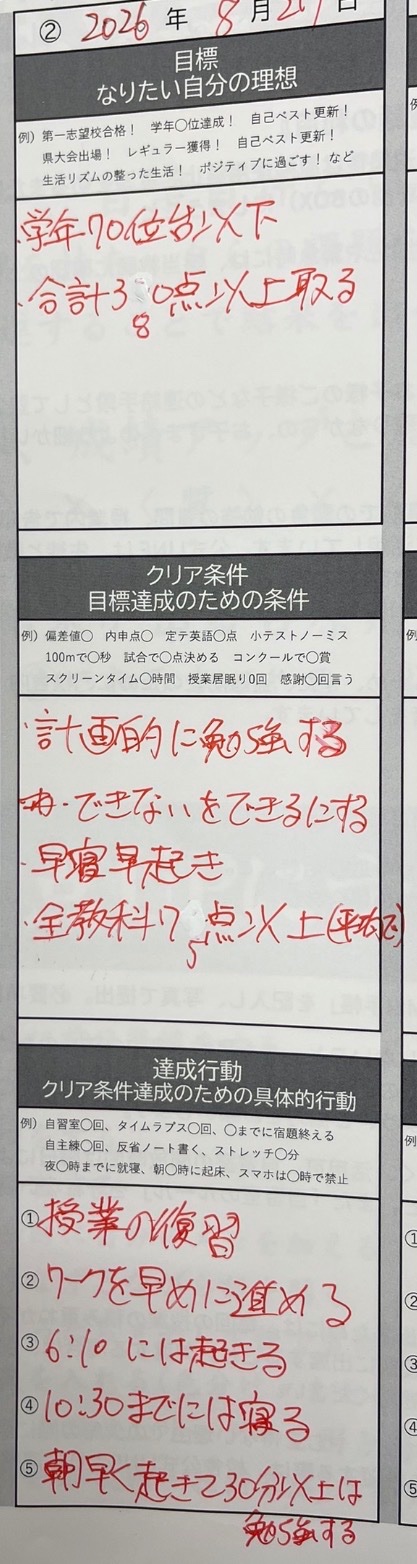 ② 2026 年 8 月 27 日
目標
なりたい自分の理想
例）第一志望校合格！ 学年〇位達成！ 自己ベスト更新！
県大会出場！ レギュラー獲得！ 自己ベスト更新！
生活リズムの整った生活！ ポジティブに過ごす！ など
・学年70位台以下
・合計380点以上取る
クリア条件
目標達成のための条件
例）偏差値〇 内申点〇 定テ英語〇点 小テストノーミス
100mで〇秒 試合で〇点決める コンクールで〇賞
スクリーンタイム〇時間 授業居眠り0回 感謝〇回言う
・計画的に勉強する
・できないをできるにする
・早寝早起き
・全教科75点以上(平均で)
達成行動
クリア条件達成のための具体的行動
例）自習室〇回、タイムラプス〇回、〇までに宿題終える
自主練〇回、反省ノート書く、ストレッチ〇分
夜〇時までに就寝、朝〇時に起床、スマホは〇時で禁止
①授業の復習
②ワークを早めに進める
③6:10には起きる
④10:30までには寝る
⑤朝早く起きて30分以上は
勉強する